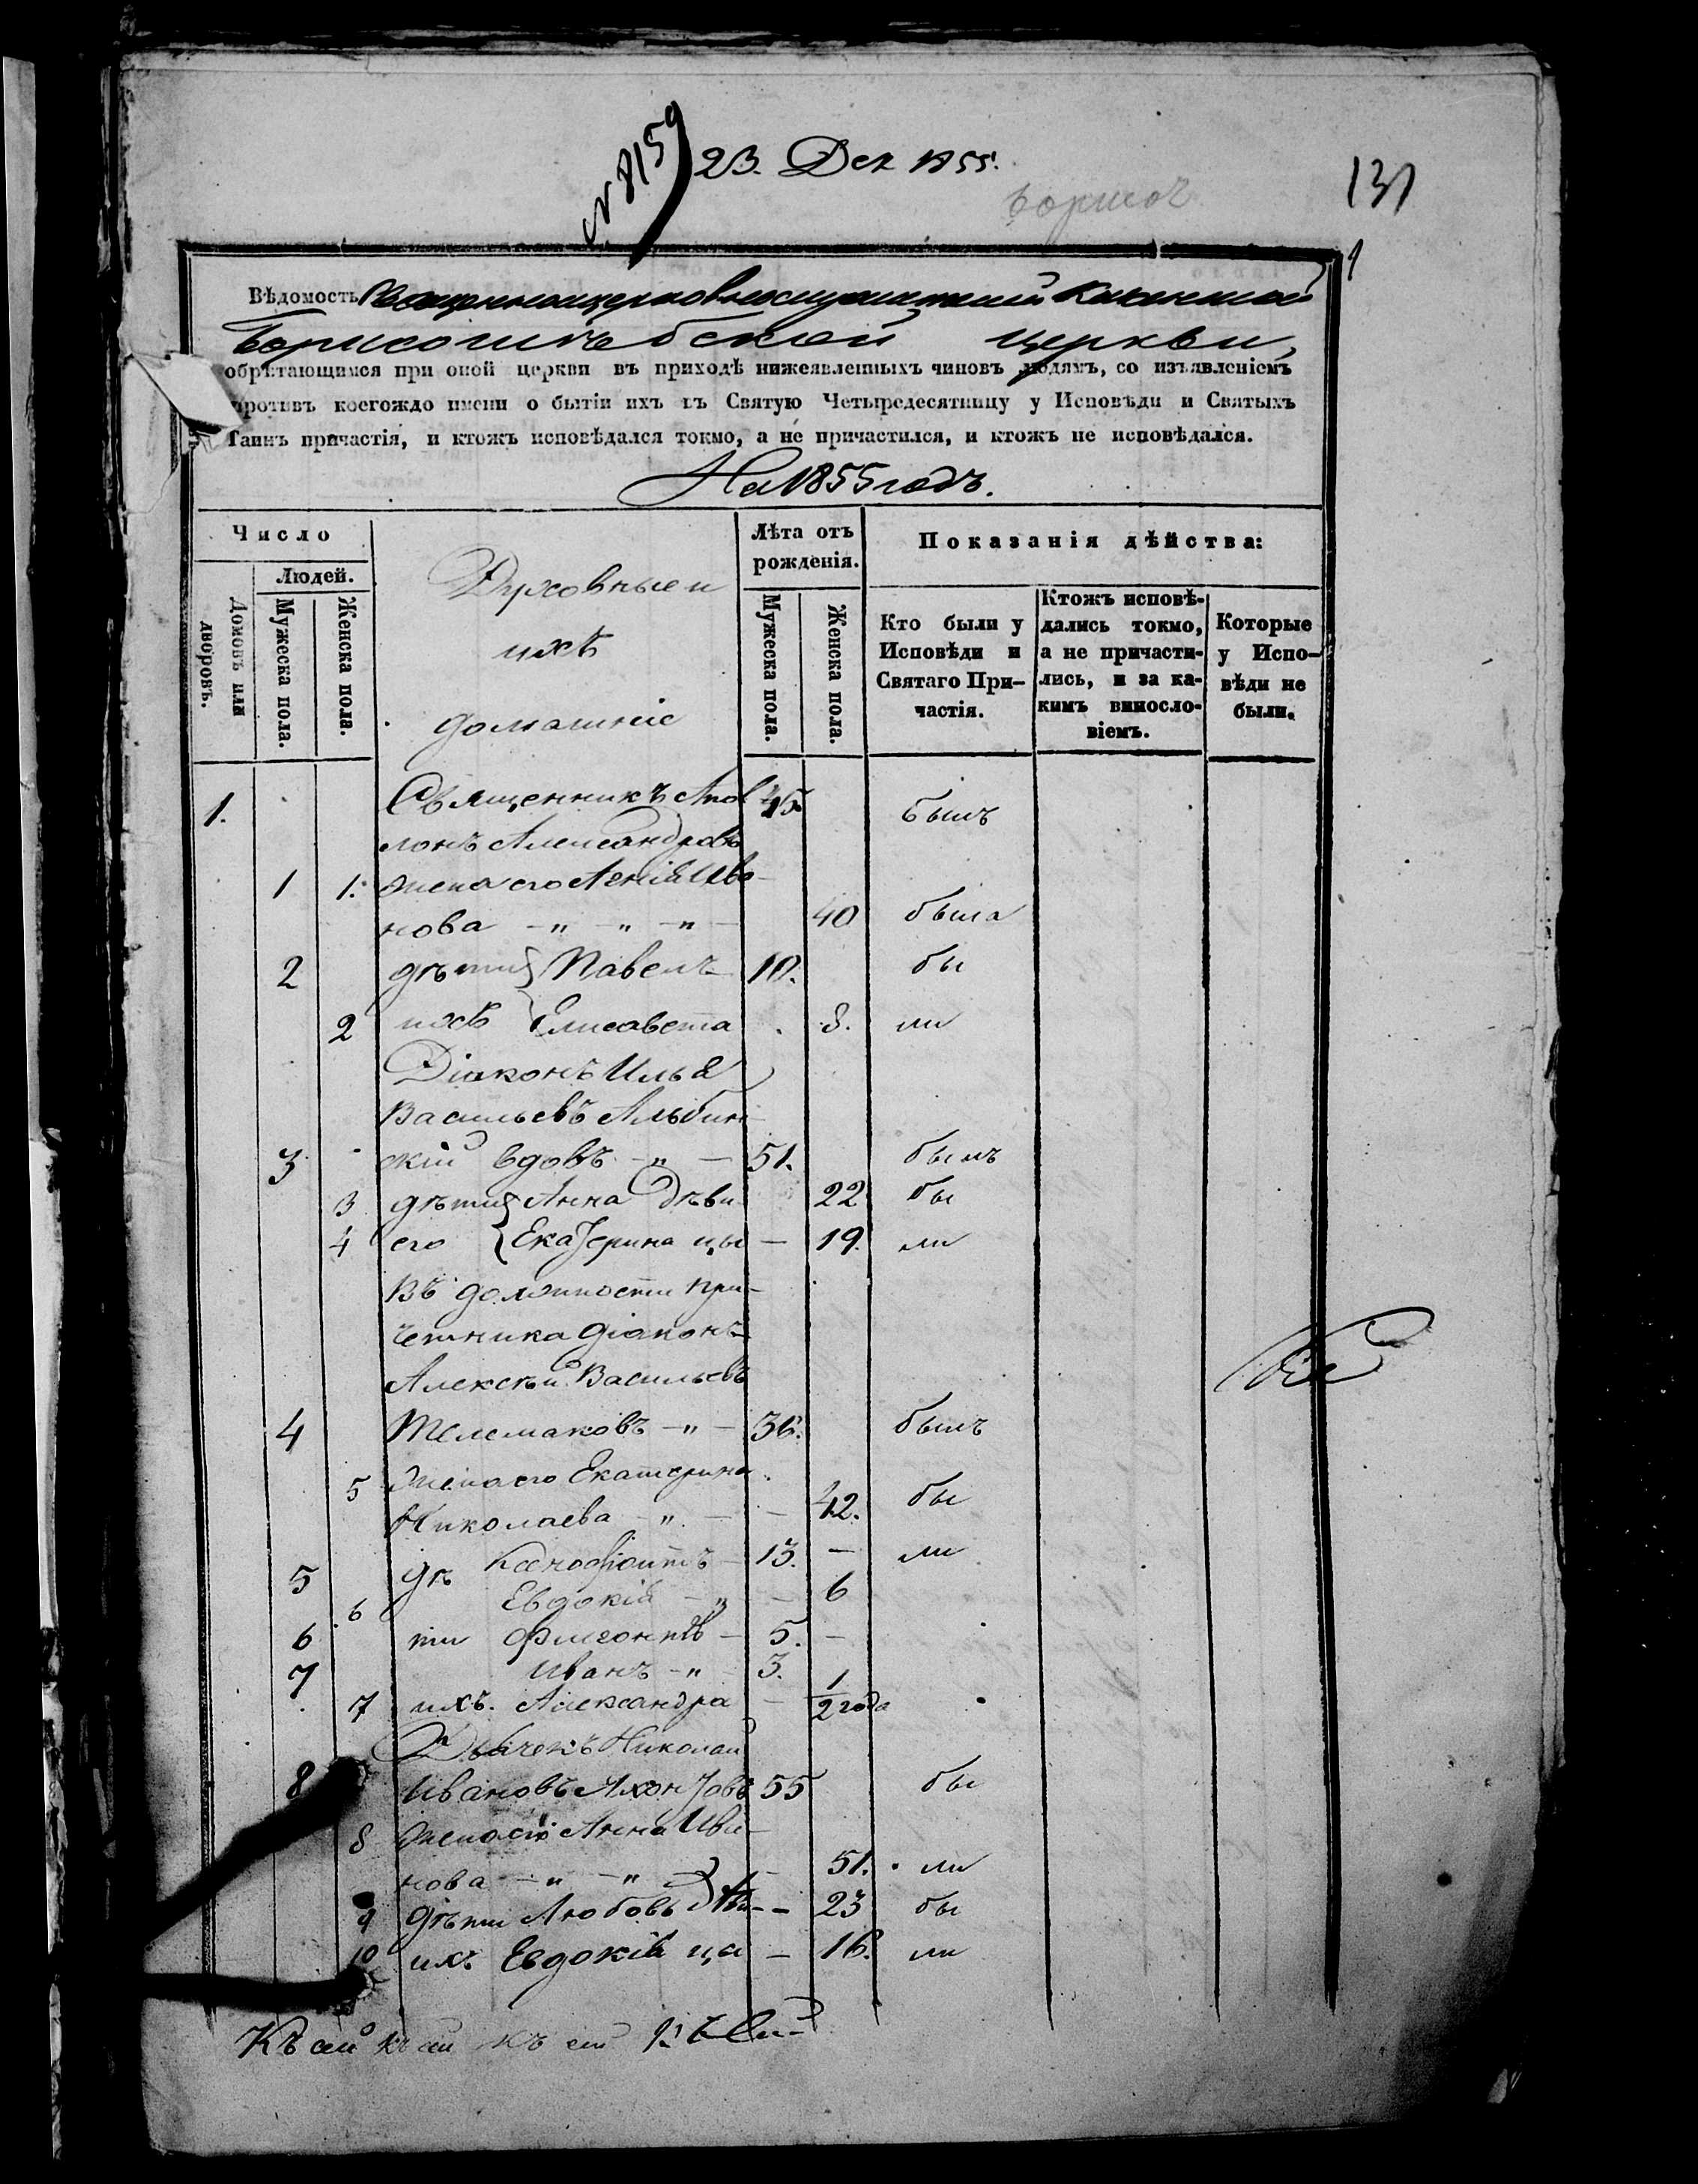 № 8159
23. Дек 1855.
Борисог
131
1
Вѣдомость
Борисоглѣбской церкви,
обрѣтающимся при оной церкви въ приходѣ нижеявленныхъ чиновъ людямъ, со изъявленіемъ
противъ коегождо имени о бытіи ихъ въ Святую Четыредесятницу у Исповѣди и Святыхъ
Таинъ причастія, и ктожъ исповѣдался токмо, а не причастился, и ктожъ не исповѣдался.
На 1855 годъ.
Число
Людей.
Домовъ или дворовъ.
Мужеска пола.
Женска пола.
Духовные и
ихъ
домашніе
Лѣта отъ рожденія.
Мужеска пола.
Женска пола.
Показанія дѣйства:
Кто были у Исповѣди и Святаго При-частія.
Ктожъ исповѣ-дались токмо, а не причасти-лись, и за ка-кимъ винословіемъ.
Которые у Испо-вѣди не были.
1. Священникъ Апол 45. былъ
лонъ Александровъ
1 1. жена его Ива-
нова — " " " — 40 была
2 дѣти Павелъ 10. бы
2 ихъ Елисавета 8. ли
Діаконъ Илья
Васильевъ Альбин-
3 скій вдовъ — " — 51. былъ
3 дѣти Анна Дѣви 22 бы
4 его Екатерина цы — 19. ли
Въ должности при-
четника діаконъ
Алексѣй Васильевъ
4 Телемаковъ — " — 36. былъ
5 Жена его Екатерина
Николаева — " — 42. бы
5 дѣ Ксенофонтъ — 13. — ли
6 Евдокія — " — 6
6 ти Флегонтъ — 5. —
7 Иванъ — " 3.
7 ихъ. Александра — 1/2 года
Дьячекъ Николай
8 Ивановъ 55 бы
8 жена его Анна Ива-
нова — " — " — 51. ли
9 дѣти Любовь Дѣви — 23 бы
10 ихъ Евдокія ца — 16. ли
Къ сей къ сей къ сей